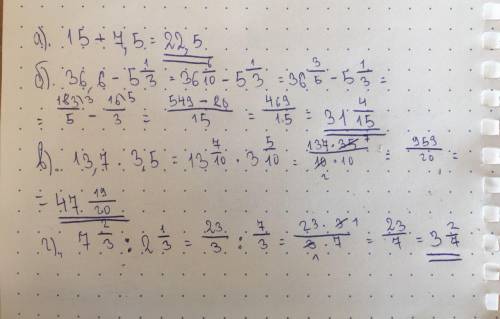 а). 15 + 7,5 = 22,5.
б). 36,6 - 5 1/3 = 36 6/10 - 5 1/3 = 36 3/5 - 5 1/3 =
= 183/5 - 16/3 = (549 - 80)/15 = 469/15 = 31 4/15
в). 13,7 · 3,5 = 13 7/10 · 3 5/10 = (137 · 35)/(10 · 10) = 959/20 =
= 47 19/20
г). 7 2/3 : 2 1/3 = 23/3 : 7/3 = (23 · 3)/(3 · 7) = 23/7 = 3 2/7